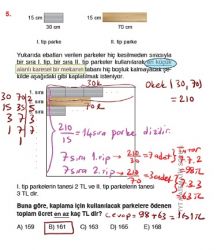 5.
15 cm
30 cm
15 cm
70 cm
I. tip parke
II. tip parke
Yukarıda ebatları verilen parkeler hiç kesilmeden sırasıyla
bir sıra I. tip, bir sıra II. tip parkeler kullanılarak en küçük
alanlı karesel bir mekanın tabanı hiç boşluk kalmayacak şe-
kilde aşağıdaki gibi kaplanmak isteniyor.
Okek(30, 70)
= 210
30 70 2
15 35
210/15 = 14 sıra parke dizdir.
7 sıra 1. tip → 210/30 = 7 adet
7.7.2
= 98 TL
7 sıra 2. tip → 210/70 = 3 adet
7.3.3
= 63 TL
I. tip parkelerin tanesi 2 TL ve II. tip parkelerin tanesi
3 TL dir.
Buna göre, kaplama için kullanılacak parkelere ödenen
toplam ücret en az kaç TL dir?
Cevap = 98 + 63 = 161 TL
A) 159 B) 161 C) 163 D) 165 E) 168